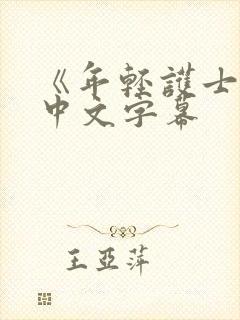 《年轻護士
中文字幕
王亚萍